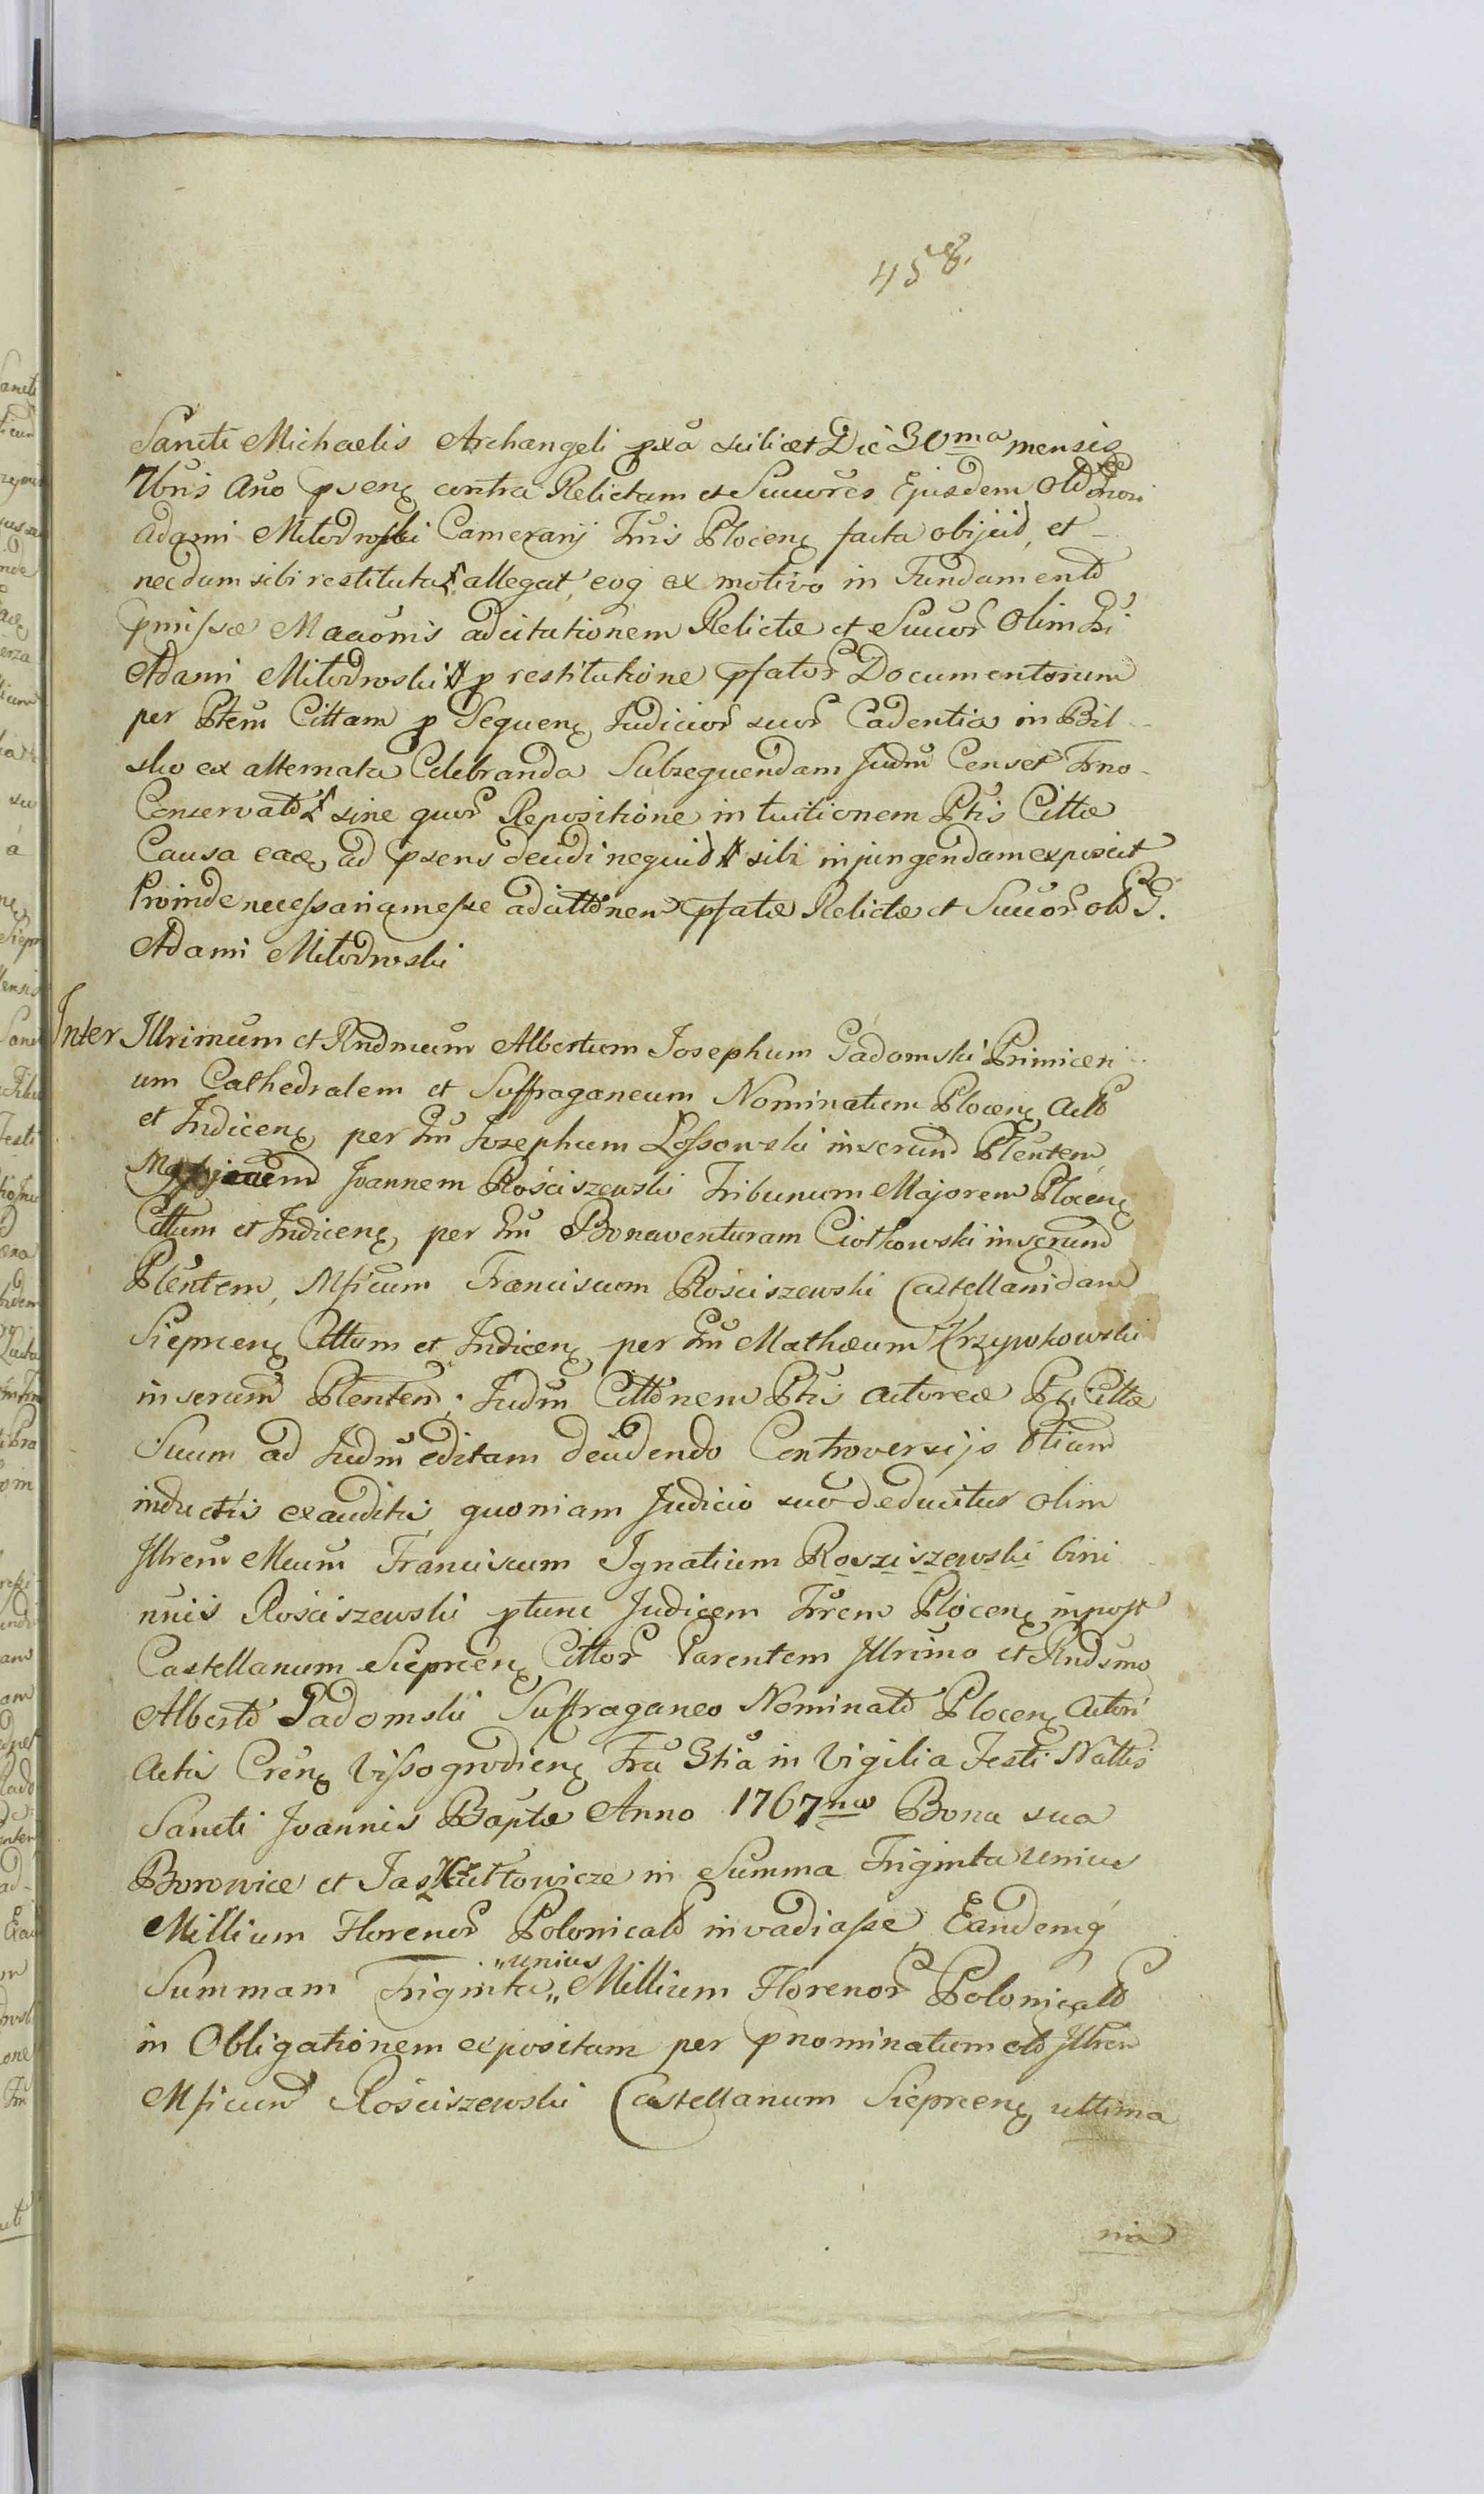 458.
Sancti Michaelis Archangeli pxa scilicet Die 30ma mensis
7bris Ano psen contra Relictam et Succores Ejusdem Old
Adami Miłodroski Cameranj Tris Plocen facta objicid, et
necdum sibi restituta allegat, eoq ex motivo in Fundamento
pmissæ Maccomis adcitationem Relictæ et Succor Olim
Adami Miłodroski p restitutione pfator Documentorum
per Ptem Cittam p Sequen Judicior suor Cadentia in Bil-
sko ex alternata Celebranda Subsequendam Judm Censet Trno
Conservato sine quor Repositione in tuitionem Ptis Cittæ
Causa eaq ad psens decidi nequid sibi injungendam exposcit
Proinde necessariam esse adcittonem pfatæ Relictæ et Succor old G.
Adami Miłodroski
Inter Illrimum et Rndmum Albertum Josephum Gadomski Primiceri
um Cathedralem et Suffraganeum Nominatum Plocen Act
et Indicen per Josephum Lossowski inserund Plentem
Joannem Rościszewski Tribunum Majorem Plocen
Cittum et Indicen, per Bonaventuram Ciołkowski inserund
Plentem, Mficum Franciscum Rościszewski Castellanidam
Sieprcen Cittum et Indicen per Mathæum Krzywkowski
inserund Plentem. Judm Cittonem Ptis actoreæ Pti Cittæ
Suum ad Judm editam decidendo Controversijs Ptium
inductis exauditis, quoniam Judicio suo deducitur olim
Illrem Mcum Franciscum Ignatium Roszsiszewski bini
nnis Rościszewski ptunc Judicem Trrem Plocen inpost
Castellanum Sieprcen Cittor Parentem Illrimo et Rndsmo
Alberto Gadomski Suffraganeo Nominato Plocen Actori
Actis Cren Vissogrodien Fra 3tia in Vigilia Festi Nattis
Sancti Joannis Baptæ Anno 1767mo Bona sua
Borowice et Jas in Summa Triginta unius
Millium Florenor Polonicalt invadiasse, Eandemq
Summam Triginta „unius„ Millium Florenor Polonicalt
in Obligationem expositam per pnominatum old Illrem
Mficum Rościszewski Castellanum Sieprcen ultima
nia